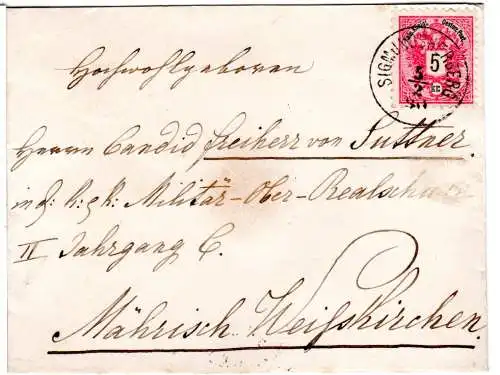 Hochwohlgeboren
Herrn Candid Freiherr von Suttner.
in d: k: & k: Militär-Ober-Realschule
II Jahrgang C.
Mährisch Weißkirchen.
5